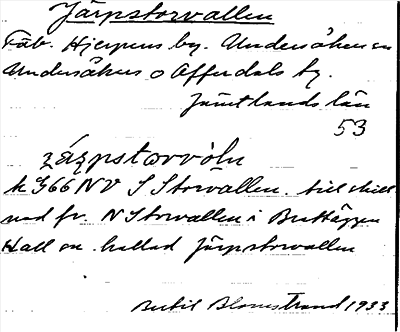 Järpstorvallen
Fäb. Hjerpens by. Undersåkers sn
Undersåkers o Offerdals tg.
Jämtlands län
53
k 366 NV S Storvallen till skill
nad fr. N Storvallen i
Hall sn kallad Järpstorvallen
Bertil Blomstrand 1933